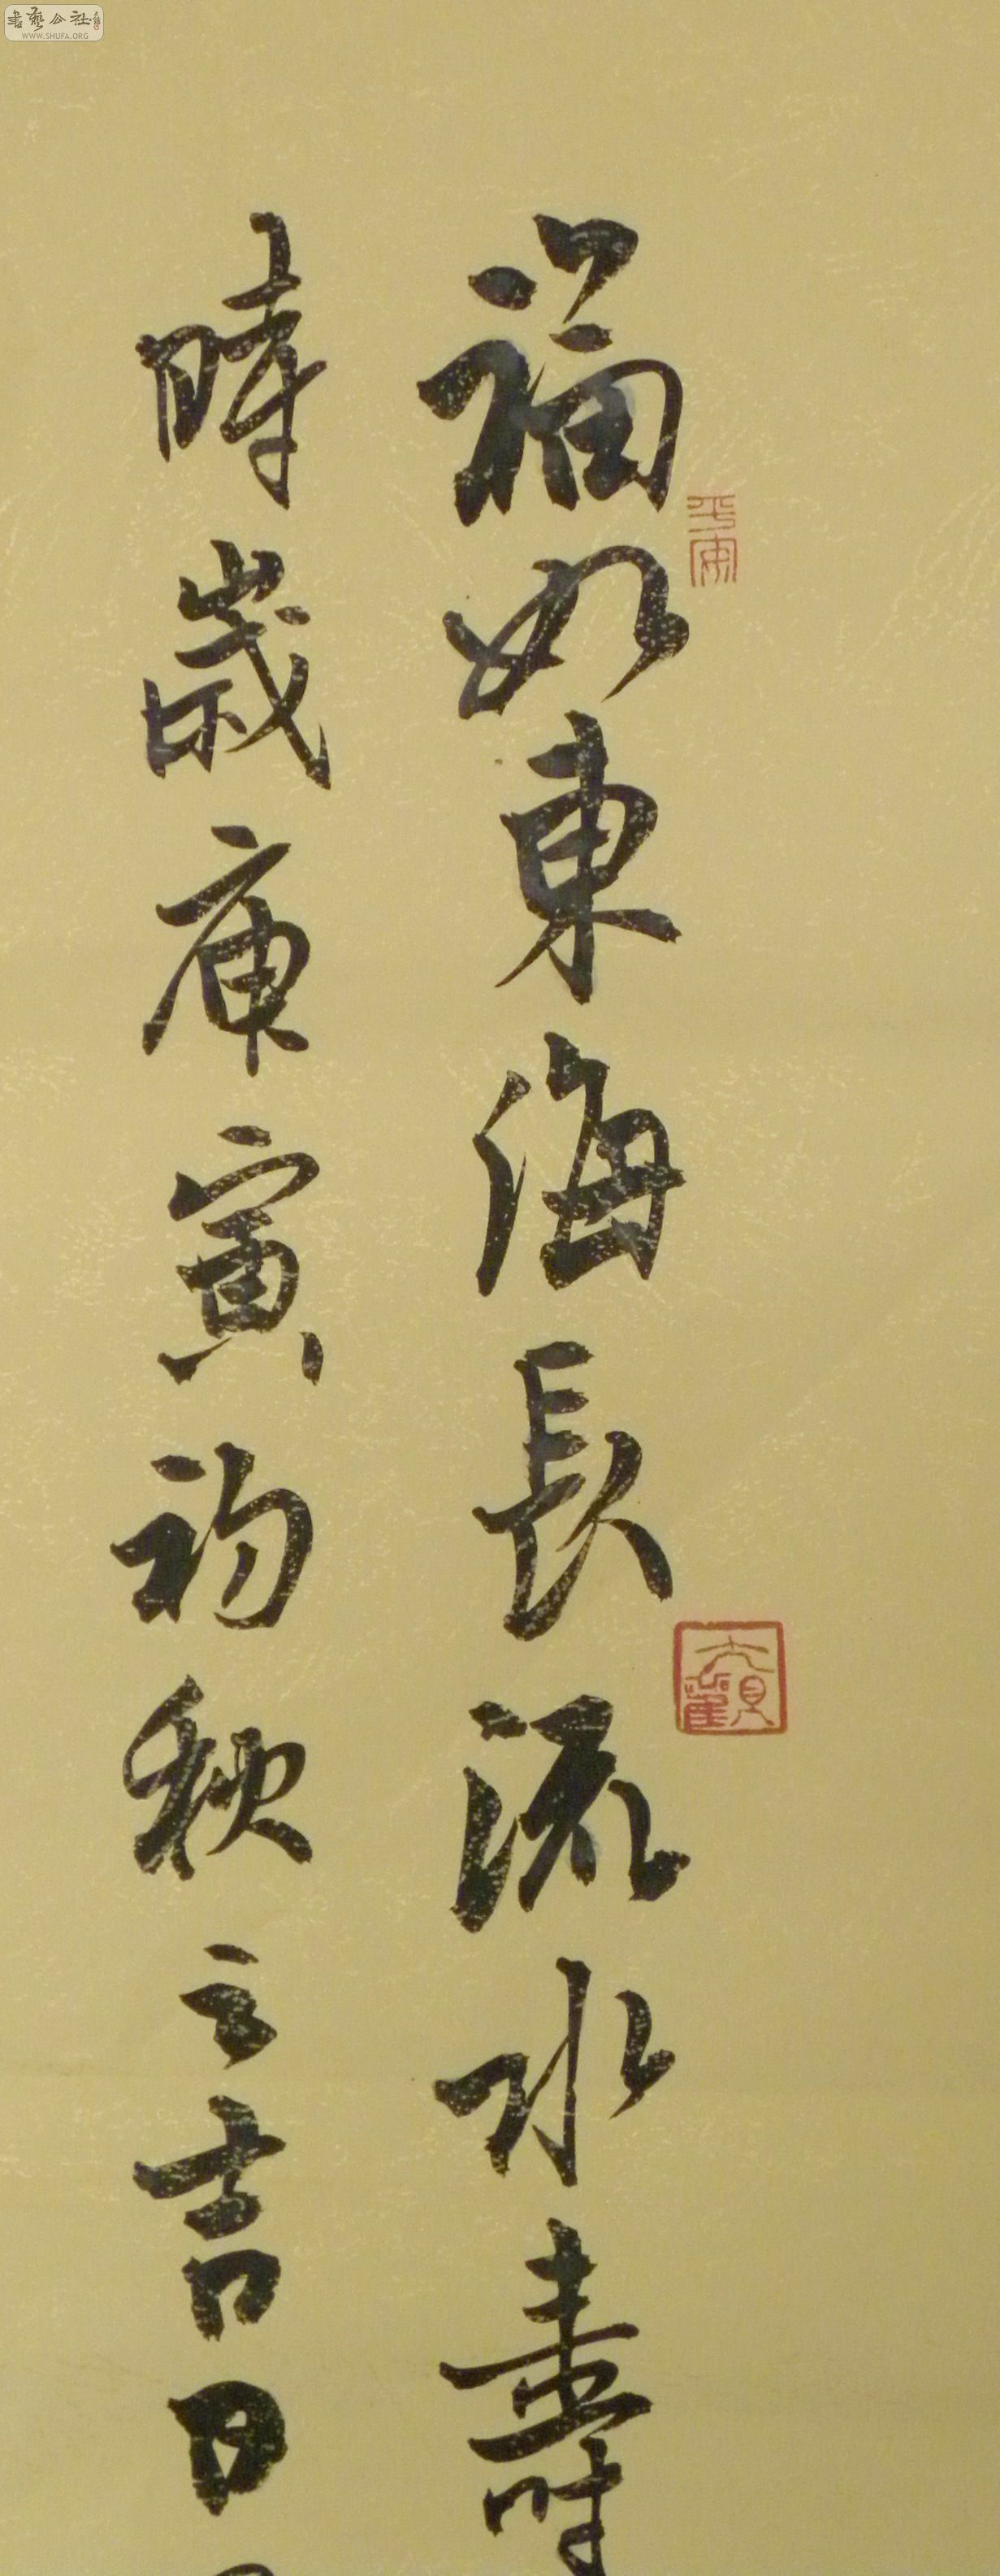 福如東海長流水壽
時歲庚寅初秋之吉日
平安
書藝公社
WWW.SHUFA.ORG